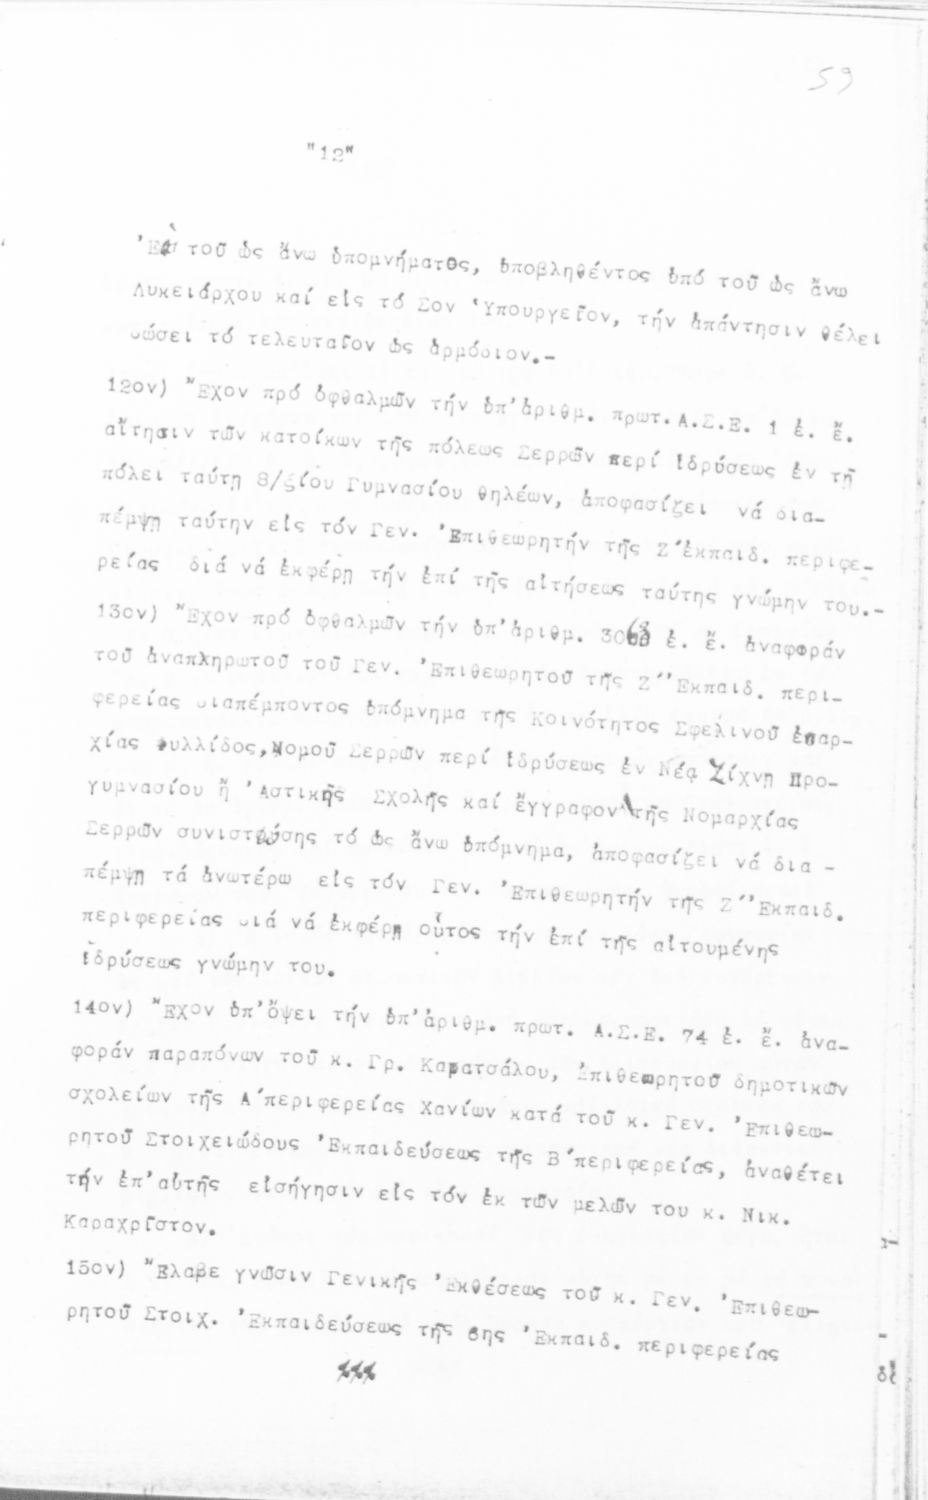 59
"12"
Ἐπὶ τοῦ ὡς ἄνω ὑπομνήματος, ὑποβληθέντος ὑπό τοῦ ὡς ἄνω
Λυκειάρχου καί εἰς τό Σον Ὑπουργεῖον, τήν ἀπάντησιν θέλει
δώσει τό τελευταῖον ὡς ἁρμόδιον.-
12ον) Ἔχον πρό ὀφθαλμῶν τήν ὑπ'ἀριθμ. πρωτ.Α.Σ.Ε. 1 ἐ. ἔ.
αἴτησιν τῶν κατοίκων τῆς πόλεως Σερρῶν περί ἱδρύσεως ἐν τῇ
πόλει ταύτῃ 8/ξίου Γυμνασίου θηλέων, ἀποφασίζει νά δια-
πέμψῃ ταύτην εἰς τόν Γεν. Ἐπιθεωρητήν τῆς Ζ΄ἐκπαιδ. περιφε-
ρείας διά νά ἐκφέρῃ τήν ἐπί τῆς αἰτήσεως ταύτης γνώμην του.-
13ον) Ἔχον πρό ὀφθαλμῶν τήν ὑπ'ἀριθμ. ἐ. ἔ. ἀναφοράν
τοῦ ἀναπληρωτοῦ τοῦ Γεν. Ἐπιθεωρητοῦ τῆς Ζ΄Ἐκπαιδ. περι-
φερείας διαπέμποντος ὑπόμνημα τῆς Κοινότητος Σφελινοῦ ἐπαρ-
χίας Φυλλίδος,Νομοῦ Σερρῶν περί ἱδρύσεως ἐν Νέᾳ Ζίχνῃ Προ-
γυμνασίου ἤ Ἀστικῆς Σχολῆς καί ἔγγραφον τῆς Νομαρχίας
Σερρῶν συνιστώσης τό ὡς ἄνω ὑπόμνημα, ἀποφασίζει νά δια -
πέμψῃ τά ἀνωτέρω εἰς τόν Γεν. Ἐπιθεωρητήν τῆς Ζ΄Ἐκπαιδ.
περιφερείας διά νά ἐκφέρῃ οὗτος τήν ἐπί τῆς αἰτουμένης
ἱδρύσεως γνώμην του.
14ον) Ἔχον ὑπ'ὄψει τήν ὑπ'ἀριθμ. πρωτ. Α.Σ.Ε. 74 ἐ. ἔ. ἀνα-
φοράν παραπόνων τοῦ κ. Γρ. Καρατσάλου, Ἐπιθεωρητοῦ δημοτικῶν
σχολείων τῆς Α΄περιφερείας Χανίων κατά τοῦ κ. Γεν. Ἐπιθεω-
ρητοῦ Στοιχειώδους Ἐκπαιδεύσεως τῆς Β΄περιφερείας, ἀναθέτει
τήν ἐπ'αὐτῆς εἰσήγησιν εἰς τόν ἐκ τῶν μελῶν του κ. Νικ.
Καραχρῖστον.
15ον) Ἔλαβε γνῶσιν Γενικῆς Ἐκθέσεως τοῦ κ. Γεν. Ἐπιθεω-
ρητοῦ Στοιχ. Ἐκπαιδεύσεως τῆς 6ης Ἐκπαιδ. περιφερείας